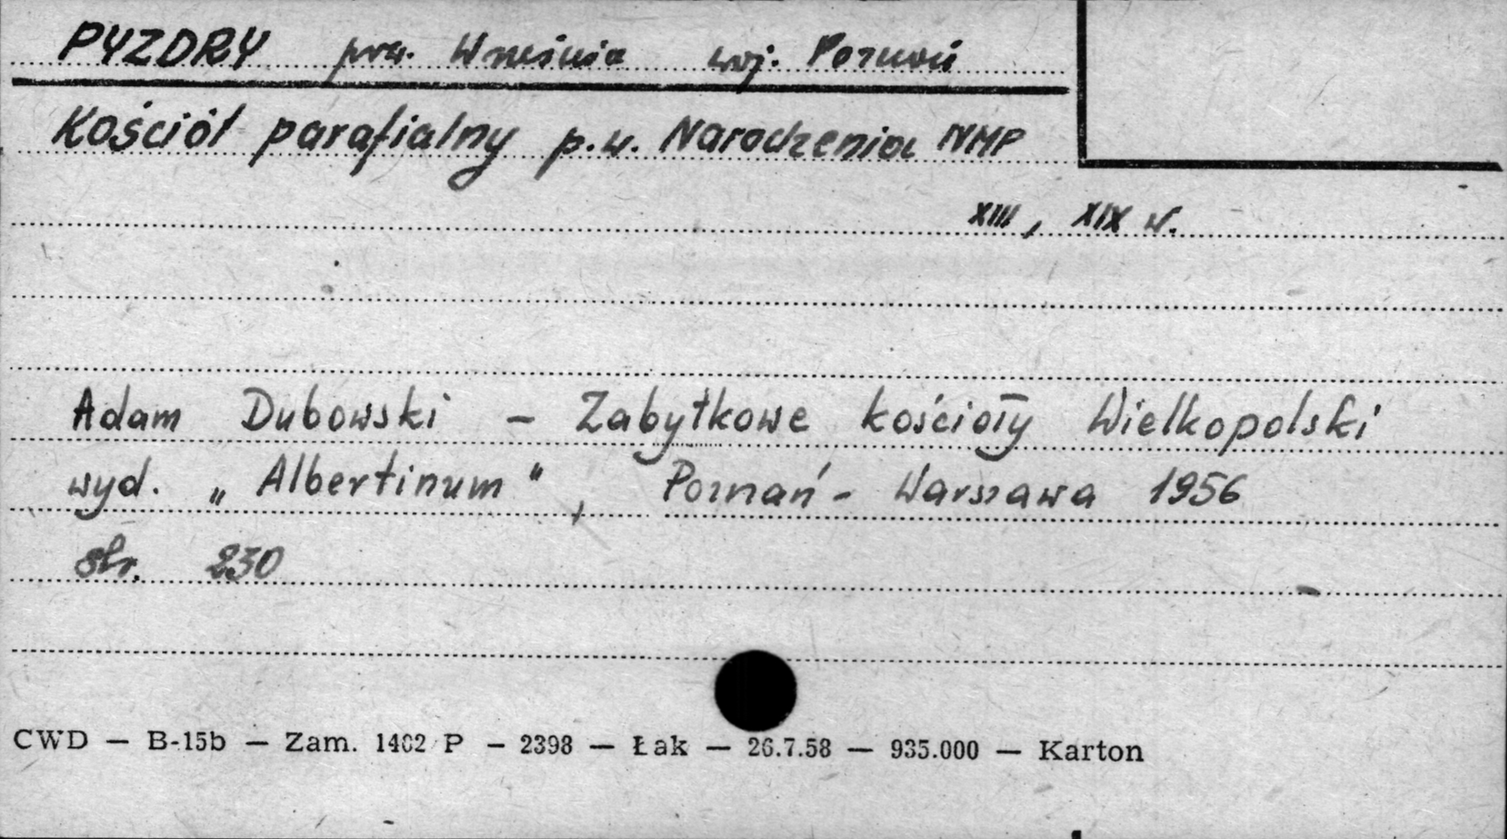 PYZDRY pow. Września woj. Poznań
Kościół parafialny p.w. Narodzenia NMP
XIII, XIX w.
Adam Dubowski – Zabytkowe kościoły Wielkopolski
wyd. „Albertinum", Poznań - Warszawa 1956
str. 230
CWD — B-15b — Zam. 1402 P — 2398 — Łak — 26.7.58 — 935.000 — Karton